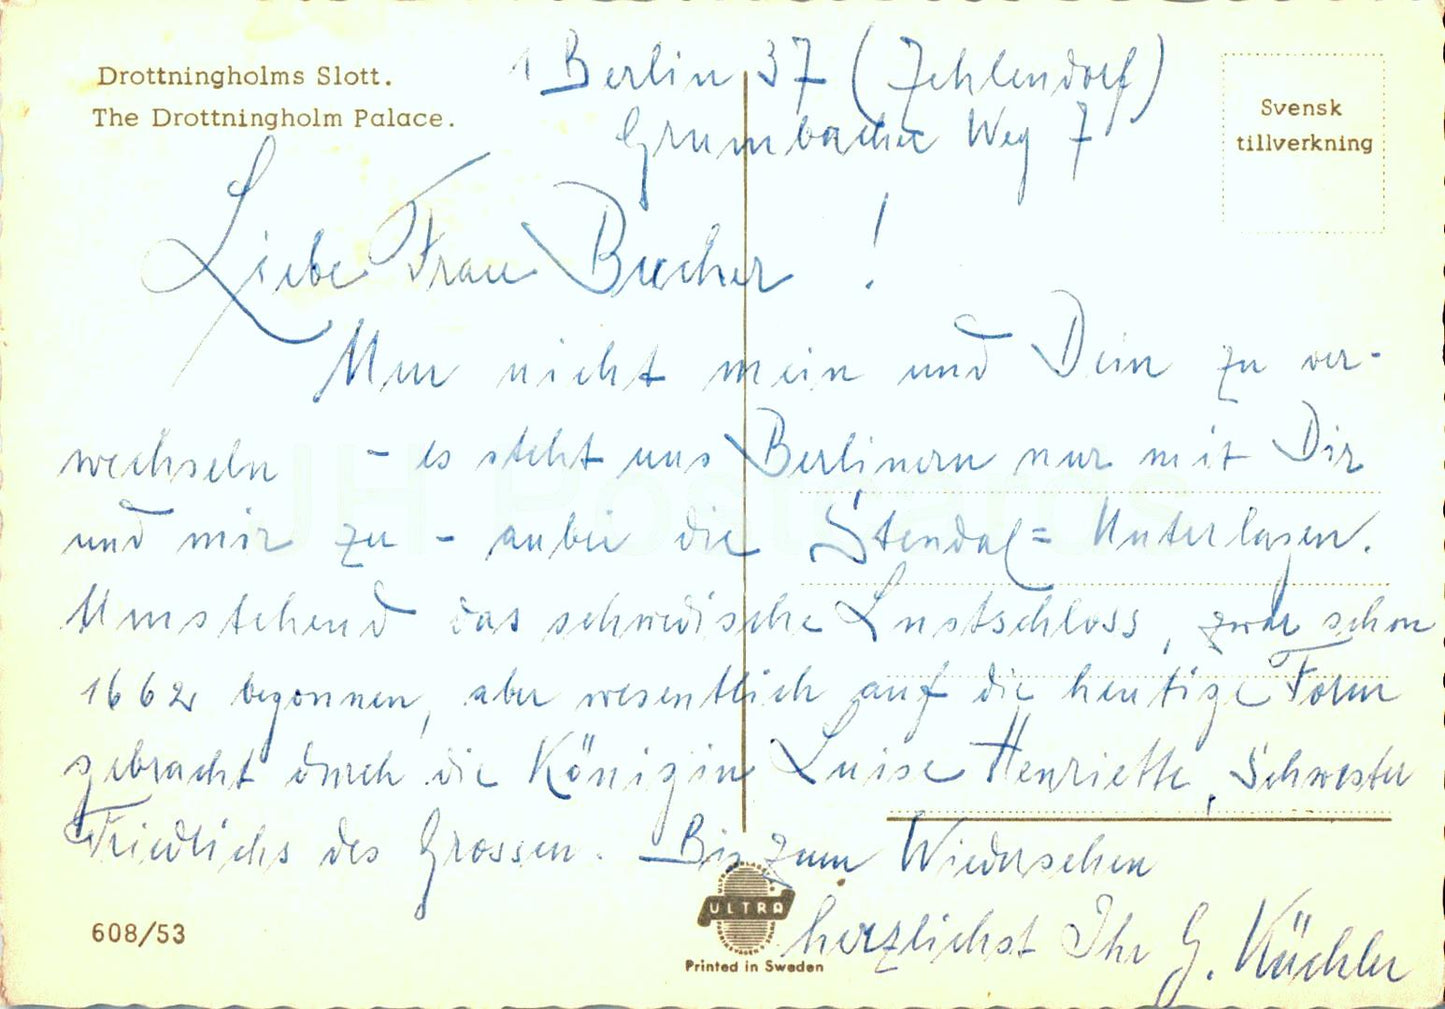 Drottningholms Slott.
The Drottningholm Palace.
1 Berlin 37 (Zehlendorf)
Grumbacher Weg 7
Svensk
tillverkning
Liebe Frau Bucher!
Um nicht mein und Dein zu ver-
wechseln - es steht uns Berlinern nur mit Dir
und mir zu - anbei die Stendal= Unterlagen.
Umstehend das schwedische Lustschloss, zwar schon
1662 begonnen, aber wesentlich auf die heutige Form
gebracht durch die Königin Luise Henriette, Schwester
Friedrichs des Grossen. Bis zum Wiedersehen
herzlichst Ihr G. Küchler
608/53
ULTRA
Printed in Sweden
JH Postcards